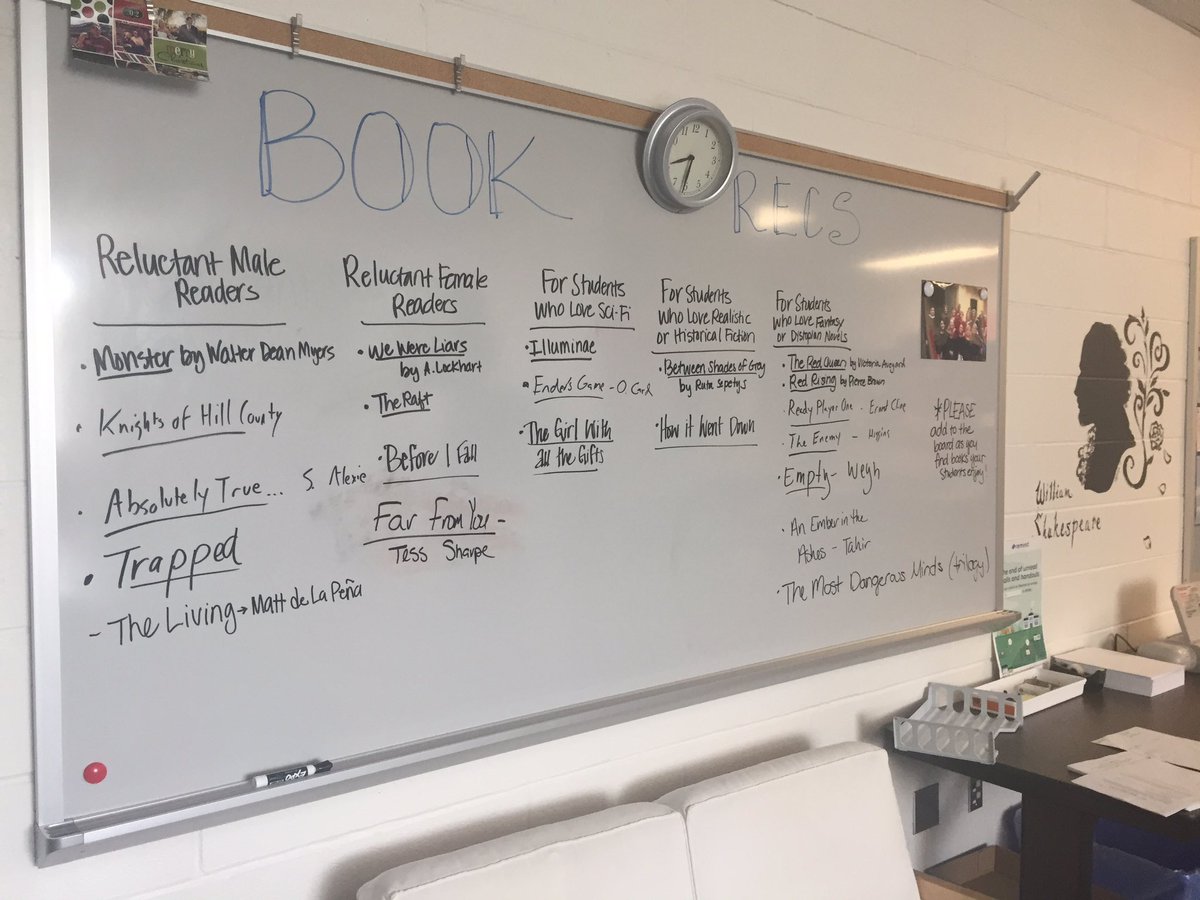 BOOK RECS
Reluctant Male
Readers
• Monster by Walter Dean Myers
• Knights of Hill County
• Absolutely True... S. Alexie
• Trapped
- The Living → Matt de La Peña
Reluctant Female
Readers
• We Were Liars
by A. Lockhart
• The Raft
• Before I Fall
Far From You -
Tess Sharpe
For Students
Who Love Sci-Fi
• Illuminae
• Ender's Game - O. Card
• The Girl With
all the Gifts
For Students
Who Love Realistic
or Historical Fiction
• Between Shades of Gray
by Ruta Sepetys
• How it Went Down
For Students
Who Love Fantasy
or Distopian Novels
• The Red Queen by Victoria Aveyard
• Red Rising by Pierce Brown
• Ready Player One - Ernest Cline
• The Enemy - Higgins
• Empty - Weyn
• An Ember in the
Ashes - Tahir
• The Most Dangerous Minds (trilogy)
*PLEASE
add to the
board as you
find books your
students enjoy!
11 12 1
2
3
4
5
6
7
8
EXPO
William
Shakespeare